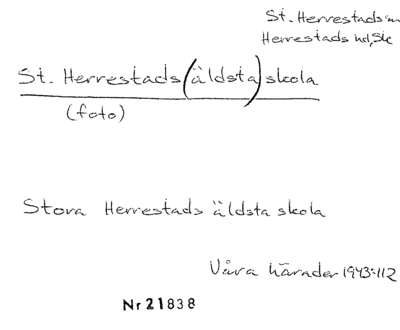 St. Herrestads sn
Herrestads hd, Sk
St. Herrestads (äldsta) skola
(foto)
Stora Herrestads äldsta skola
Våra härader 1943:112
Nr 21838